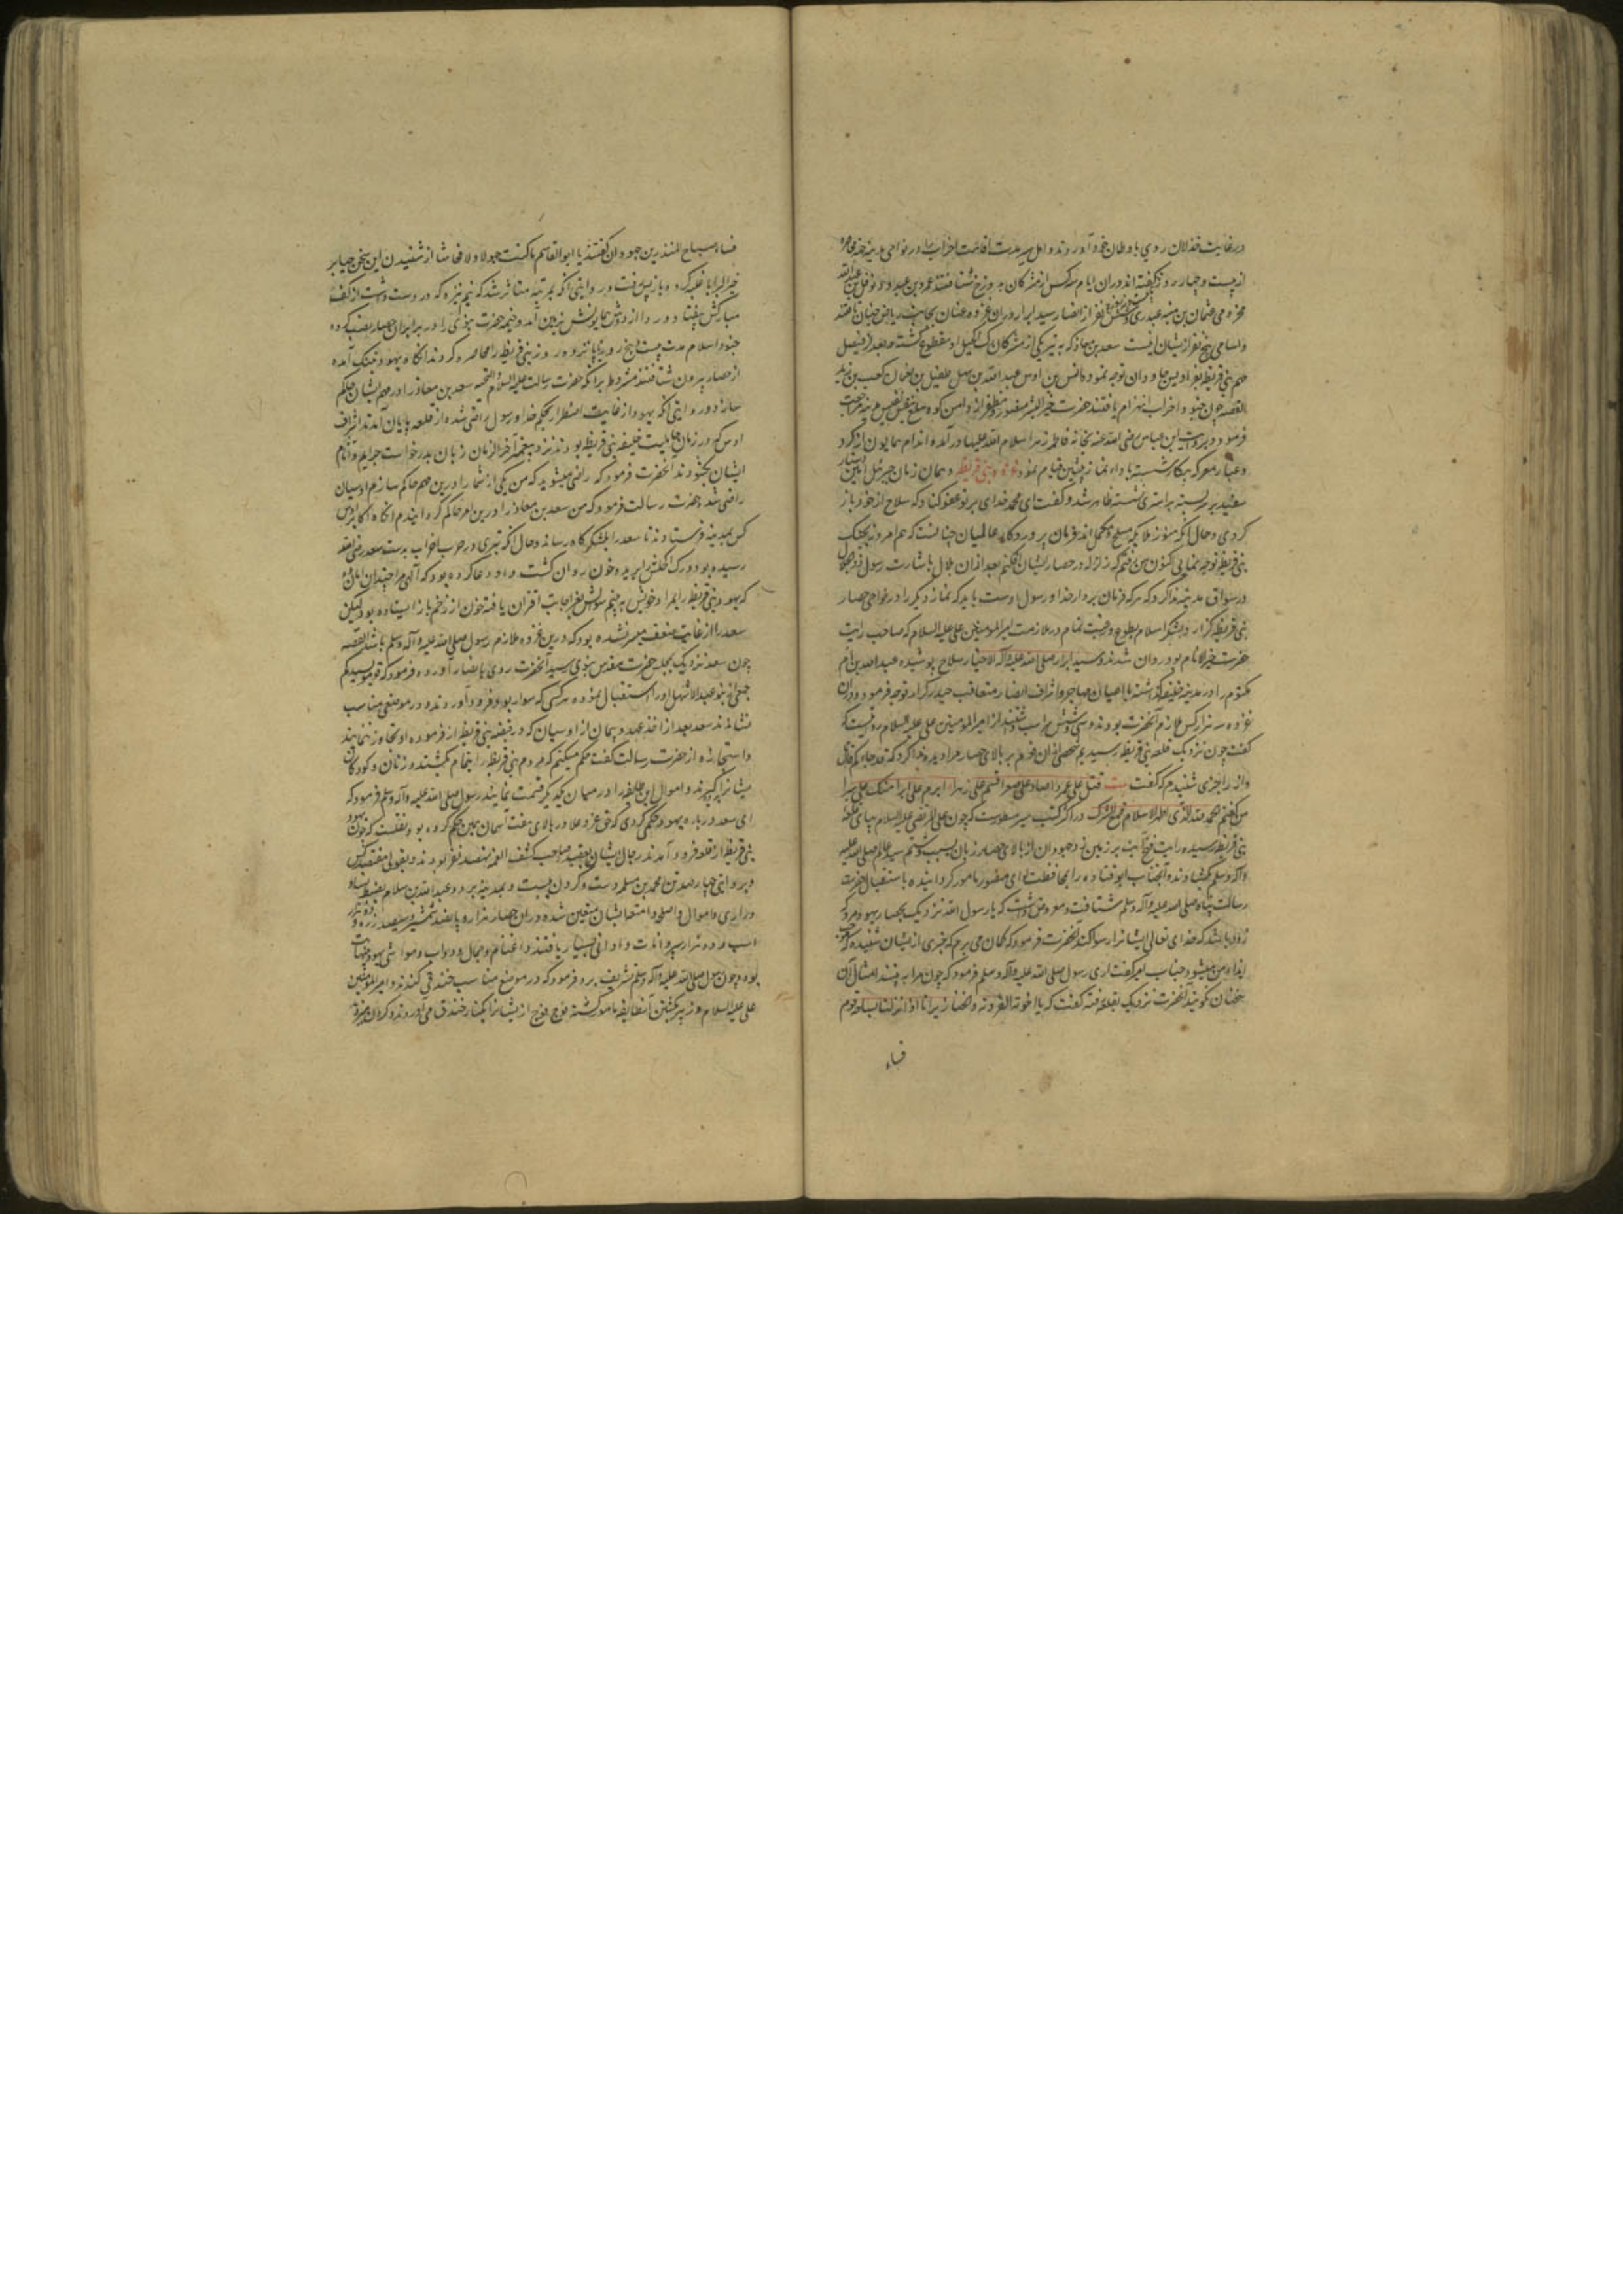 در غایت خذلان روی باوطان خود آوردند و اهل سیر مدت اقامت احزاب را در نواحی مدینه
از بیست و چهار روز گفته‌اند و در آن ایام سه کس از مشرکان به دوزخ شتافتند عمرو بن عبدود و نوفل بن عبدالله
مخزومی و عثمان بن منبه عبدری و شش نفر از انصار سید ابرار در آن غزوه عنان بجانب ریاض جنان تافتند
و اسامی پنج نفر از ایشان اینست سعد بن معاذ که به تیر یکی از مشرکان رگ اکحل او مقطوع گشته و بعد از فیصل
مهم بنی قریظه بفرادیس جاودان توجه نمود و انس بن اوس عبد الله بن سهل طفیل بن نعمان کعب بن زید
القصه چون جنود احزاب انهزام یافتند حضرت خیر البشر منصور و مظفر از دامن کوه سلع بنفس نفیس بمدینه مراجعت
فرمود و بروایت ابن عباس رضی الله عنه بخانه فاطمه زهرا سلام الله علیها در آمده اندام همایون از گرد
و غبار معرکه پیکار شسته باداء نماز پیشین قیام نمود غزوه بنی قریظه و همان زمان جبرئیل امین
سفید بر سر بسته بر استری نشسته ظاهر شد و گفت ای محمد خدای بر تو عفو کناد که سلاح از خود باز
کردی و حال آنکه هنوز ملایکه مسلح و مکمل‌اند فرمان پروردگار عالمیان چنانست که هم امروز بجنگ
بنی قریظه توجه نمایی اکنون من رفتم که زلزله در حصار ایشان افکنم بعد از آن بلال باشارت رسول ذوالجلال
در اسواق مدینه ندا کرد که هر که فرمان بردار خدا و رسول اوست باید که نماز دیگر را در نواحی حصار
بنی قریظه گزارد و لشکر اسلام بطوع و رغبت تمام در ملازمت امیر المومنین علی علیه السلام که صاحب رایت
حضرت خیر الانام بود روان شدند و سید ابرار صلی الله علیه و آله الاخیار سلاح پوشیده عبد الله بن ام
مکتوم را در مدینه خلیفه گذاشته با اعیان مهاجر و اشراف انصار متعاقب حیدر کرار توجه فرمود و در آن
غزوه سه هزار کس ملازم آنحضرت بودند و سی و شش راس اسب داشتند از امیر المومنین علی علیه السلام مرویست که
گفت چون نزدیک قلعه بنی قریظه رسیدیم شخصی از آن قوم بر بالای حصار مرا دیده ندا کرد که قد جاءکم قاتل
و از راجزی شنیدم که گفت بیت قتل علی عمرا صاد علی صقرا قصم علی ظهرا ابرم علی امرا هتک علی سترا
من گفتم الحمد لله الذی اظهر الاسلام و قمع الشرک در اکثر کتب سیر مسطورست که چون علی المرتضی علیه السلام بپای قلعه
بنی قریظه رسیده رایت فتح آیت بر زمین زد جهودان از بالای حصار زبان بسب و شتم سید عالم صلی الله علیه
و آله و سلم گشادند و آنجناب ابو قتاده را بمحافظت لوای منصور مامور گردانیده باستقبال حضرت
رسالت پناه صلی الله علیه و آله و سلم شتافت و معروض داشت که یا رسول الله نزدیک بحصار یهود مرو که
زود باشد که خدای تعالی ایشانرا رسوا کند آنحضرت فرمود که گمان می برم که چیزی از ایشان شنیده که موجب
ایذاء من میشود جناب امیر گفت آری رسول صلی الله علیه و آله و سلم فرمود که چون مرا به بینند امثال آن
سخنان نگویند آنحضرت نزدیک بقلعه رفته گفت که یا اخوة القردة و الخنازیر انا اذا نزلنا بساحة قوم
فساء
فساء صباح المنذرین جهودان گفتند یا ابوالقاسم ما کنت جهولا و لا فحاشا از شنیدن این سخن حیا بر
خیر البرایا غلبه کرد و باز پس رفت و روایتی آنکه بمرتبه متاثر شد که نیم نیزه که در دست داشت از کف
مبارکش بیفتاد و ردا از دوش همایونش بزمین آمد و خیمه حضرت نبوی را در برابر آن حصار نصب کرده
جنود اسلام مدت بیست و پنج روز یا پانزده روز بنی قریظه را محاصره کردند آنگاه یهود بتنگ آمده
از حصار بیرون شتافتند مشروط بر آنکه حضرت رسالت علیه السلام و التحیه سعد بن معاذ را در مهم ایشان حاکم
سازد و روایتی آنکه یهود از غایت اضطرار بحکم خدا و رسول راضی شده از قلعه پایان آمدند اشراف
اوس که در زمان جاهلیت حلیف بنی قریظه بودند نزد پیغمبر آخر الزمان زبان بدرخواست جرایم و آثام
ایشان گشودند آنحضرت فرمود که راضی میشوید که من یکی از شما را درین مهم حاکم سازم اوسیان
راضی شدند حضرت رسالت فرمود که من سعد بن معاذ را درین امر حاکم گردانیدم آنگاه اکابر اوس
کس بمدینه فرستادند تا سعد را بلشکرگاه رساند و حال آنکه تیری در حرب احزاب بدست سعد رضی الله
رسیده بود و رگ اکحلش را بریده خون روان گشت و او دعا کرده بود که الهی مرا چندان امان ده
که یهود بنی قریظه را بمراد خویش به بینم سوالش بعز اجابت اقتران یافته خون از زخم باز ایستاده بود لیکن
سعد را از غایت ضعف میسر نشده بود که درین غزوه ملازم رسول صلی الله علیه و آله و سلم باشد القصه
چون سعد نزدیک بمجلس حضرت مقدس نبوی رسید آنحضرت روی بانصار آورده فرمود که قوموا لسیدکم
جمعی از بنو عبد الاشهل او را استقبال نموده هر کسی که سوار بود فرود آوردند و در موضعی مناسب
نشاندند سعد بعد از اخذ عهد و پیمان از اوسیان که در قضیه بنی قریظه از فرموده او تجاوز ننمایند
و استجازه از حضرت رسالت گفت حکم میکنم که مردم بنی قریظه را بتمام بکشند و زنان و کودکان
ایشانرا بگیرند و اموال این طایفه را در میان یکدیگر قسمت نمایند رسول صلی الله علیه و آله و سلم فرمود که
ای سعد درباره یهود حکمی کردی که حق عز و علا در بالای هفت آسمان همین حکم کرده بود و نقلست که چون یهود
بنی قریظه از قلعه فرود آمدند رجال ایشان بعقیده صاحب کشف الغمه نهصد نفر بودند و بقولی هفتصد کس
و بروایتی چهارصد تن محمد بن مسلمه دست و گردن بست و بمدینه برد و عبد الله بن سلام بضبط نساء
و ذراری و اموال و اسلحه و امتعه ایشان متعین شده در آن حصار هزار و پانصد شمشیر و سیصد زره و دو هزار
اسب و دو هزار سپر و اثاث و اوانی بسیار یافتند و اغنام و جمال و دواب و مواشی یهود بی نهایت
بود و چون رسول صلی الله علیه و آله و سلم تشریف برد فرمود که در موضع مناسب خندقی کندند و امیر المومنین
علی علیه السلام و زبیر بکشتن آنطایفه مامور گشته فوج فوج از ایشانرا بکنار خندق می آوردند و گردن میزدند